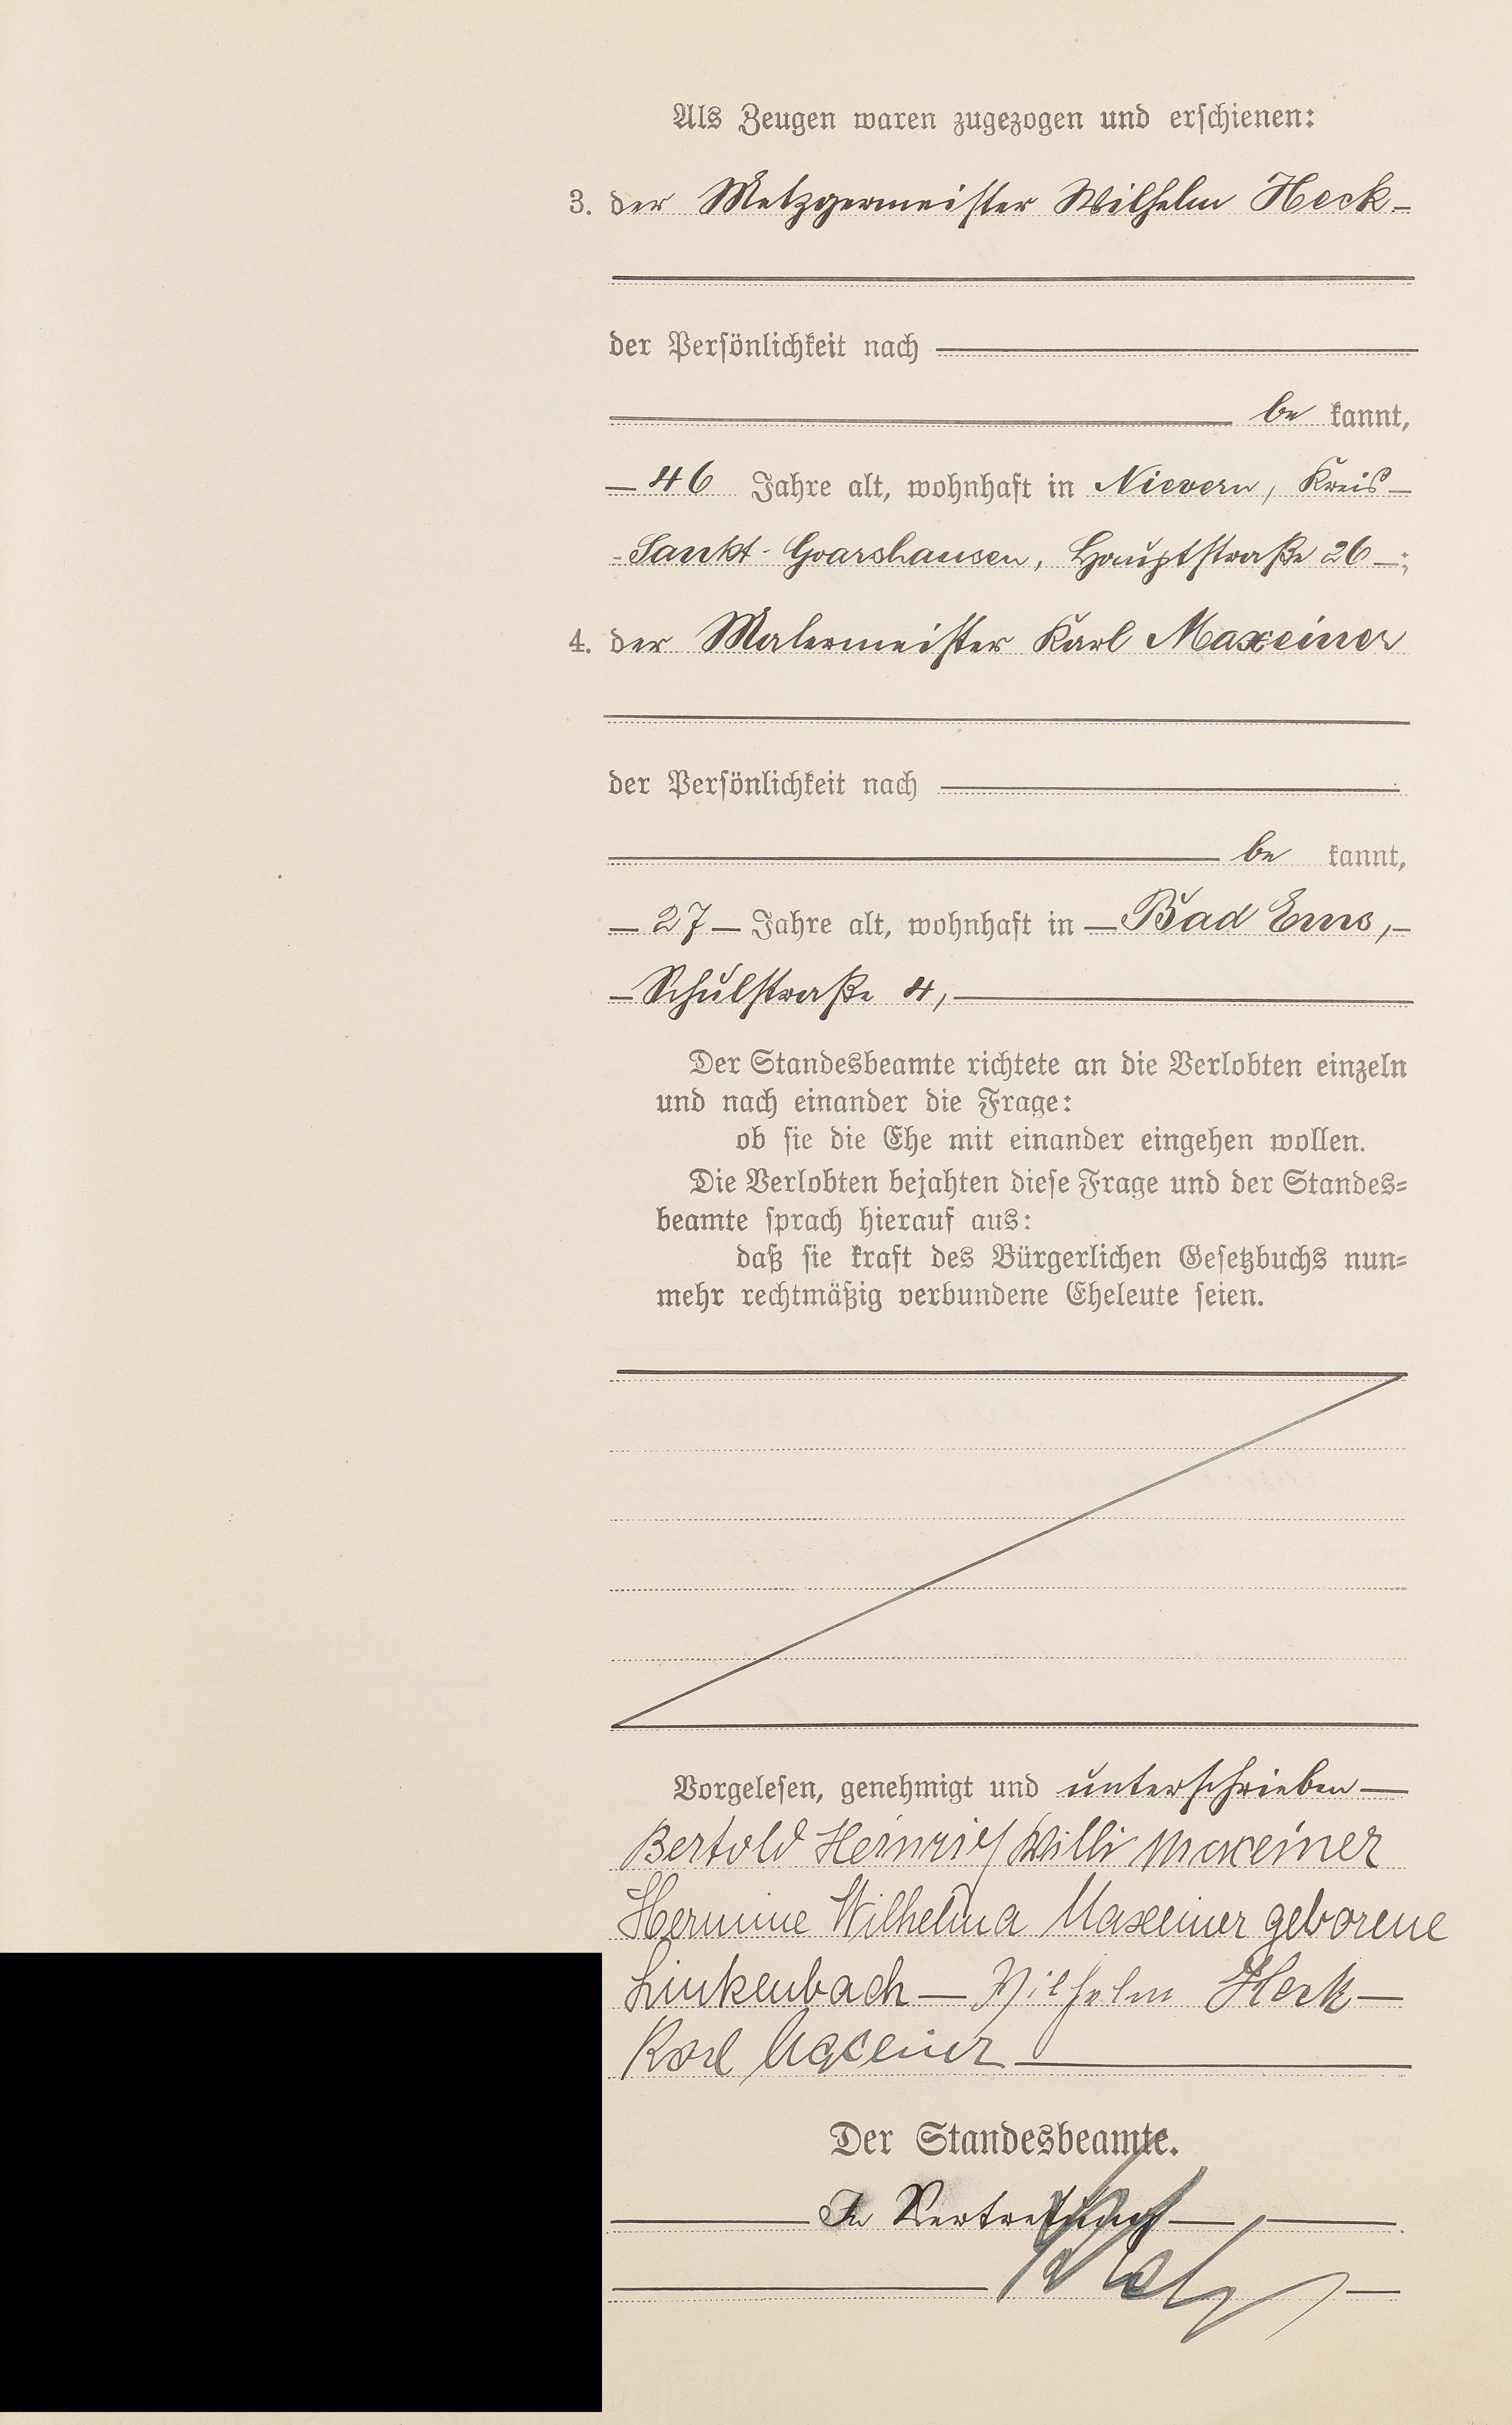 Als Zeugen waren zugezogen und erschienen:
3. der Metzgermeister Wilhelm Heck
der Persönlichkeit nach
be kannt,
46 Jahre alt, wohnhaft in Nievern, Kreis
Sankt-Goarshausen, Hauptstraße 26 ;
4. der Malermeister Karl Maxeiner
der Persönlichkeit nach
be kannt,
27 Jahre alt, wohnhaft in Bad Ems,
Schulstraße 4,
Der Standesbeamte richtete an die Verlobten einzeln
und nach einander die Frage:
ob sie die Ehe mit einander eingehen wollen.
Die Verlobten bejahten diese Frage und der Standes=
beamte sprach hierauf aus:
daß sie kraft des Bürgerlichen Gesetzbuchs nun=
mehr rechtmäßig verbundene Eheleute seien.
Vorgelesen, genehmigt und unterschrieben
Bertold Heinrich Willi Maxeiner
Hermine Wilhelmina Maxeiner geborene
Linkenbach — Wilhelm Heck —
Karl Maxeiner
Der Standesbeamte.
In Vertretung